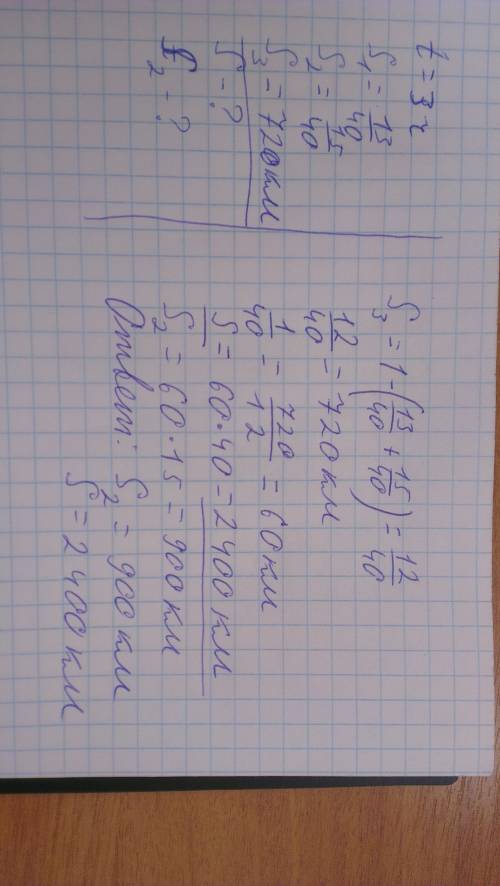 t = 3 ч
S₁ = 13/40
S₂ = 15/40
S₃ = 720 км
S - ?
S₂ - ?
S₃ = 1 - (13/40 + 15/40) = 12/40
12/40 = 720 км
1/40 = 720/12 = 60 км
S = 60·40 = 2400 км
S₂ = 60·15 = 900 км
Ответ: S₂ = 900 км
S = 2400 км